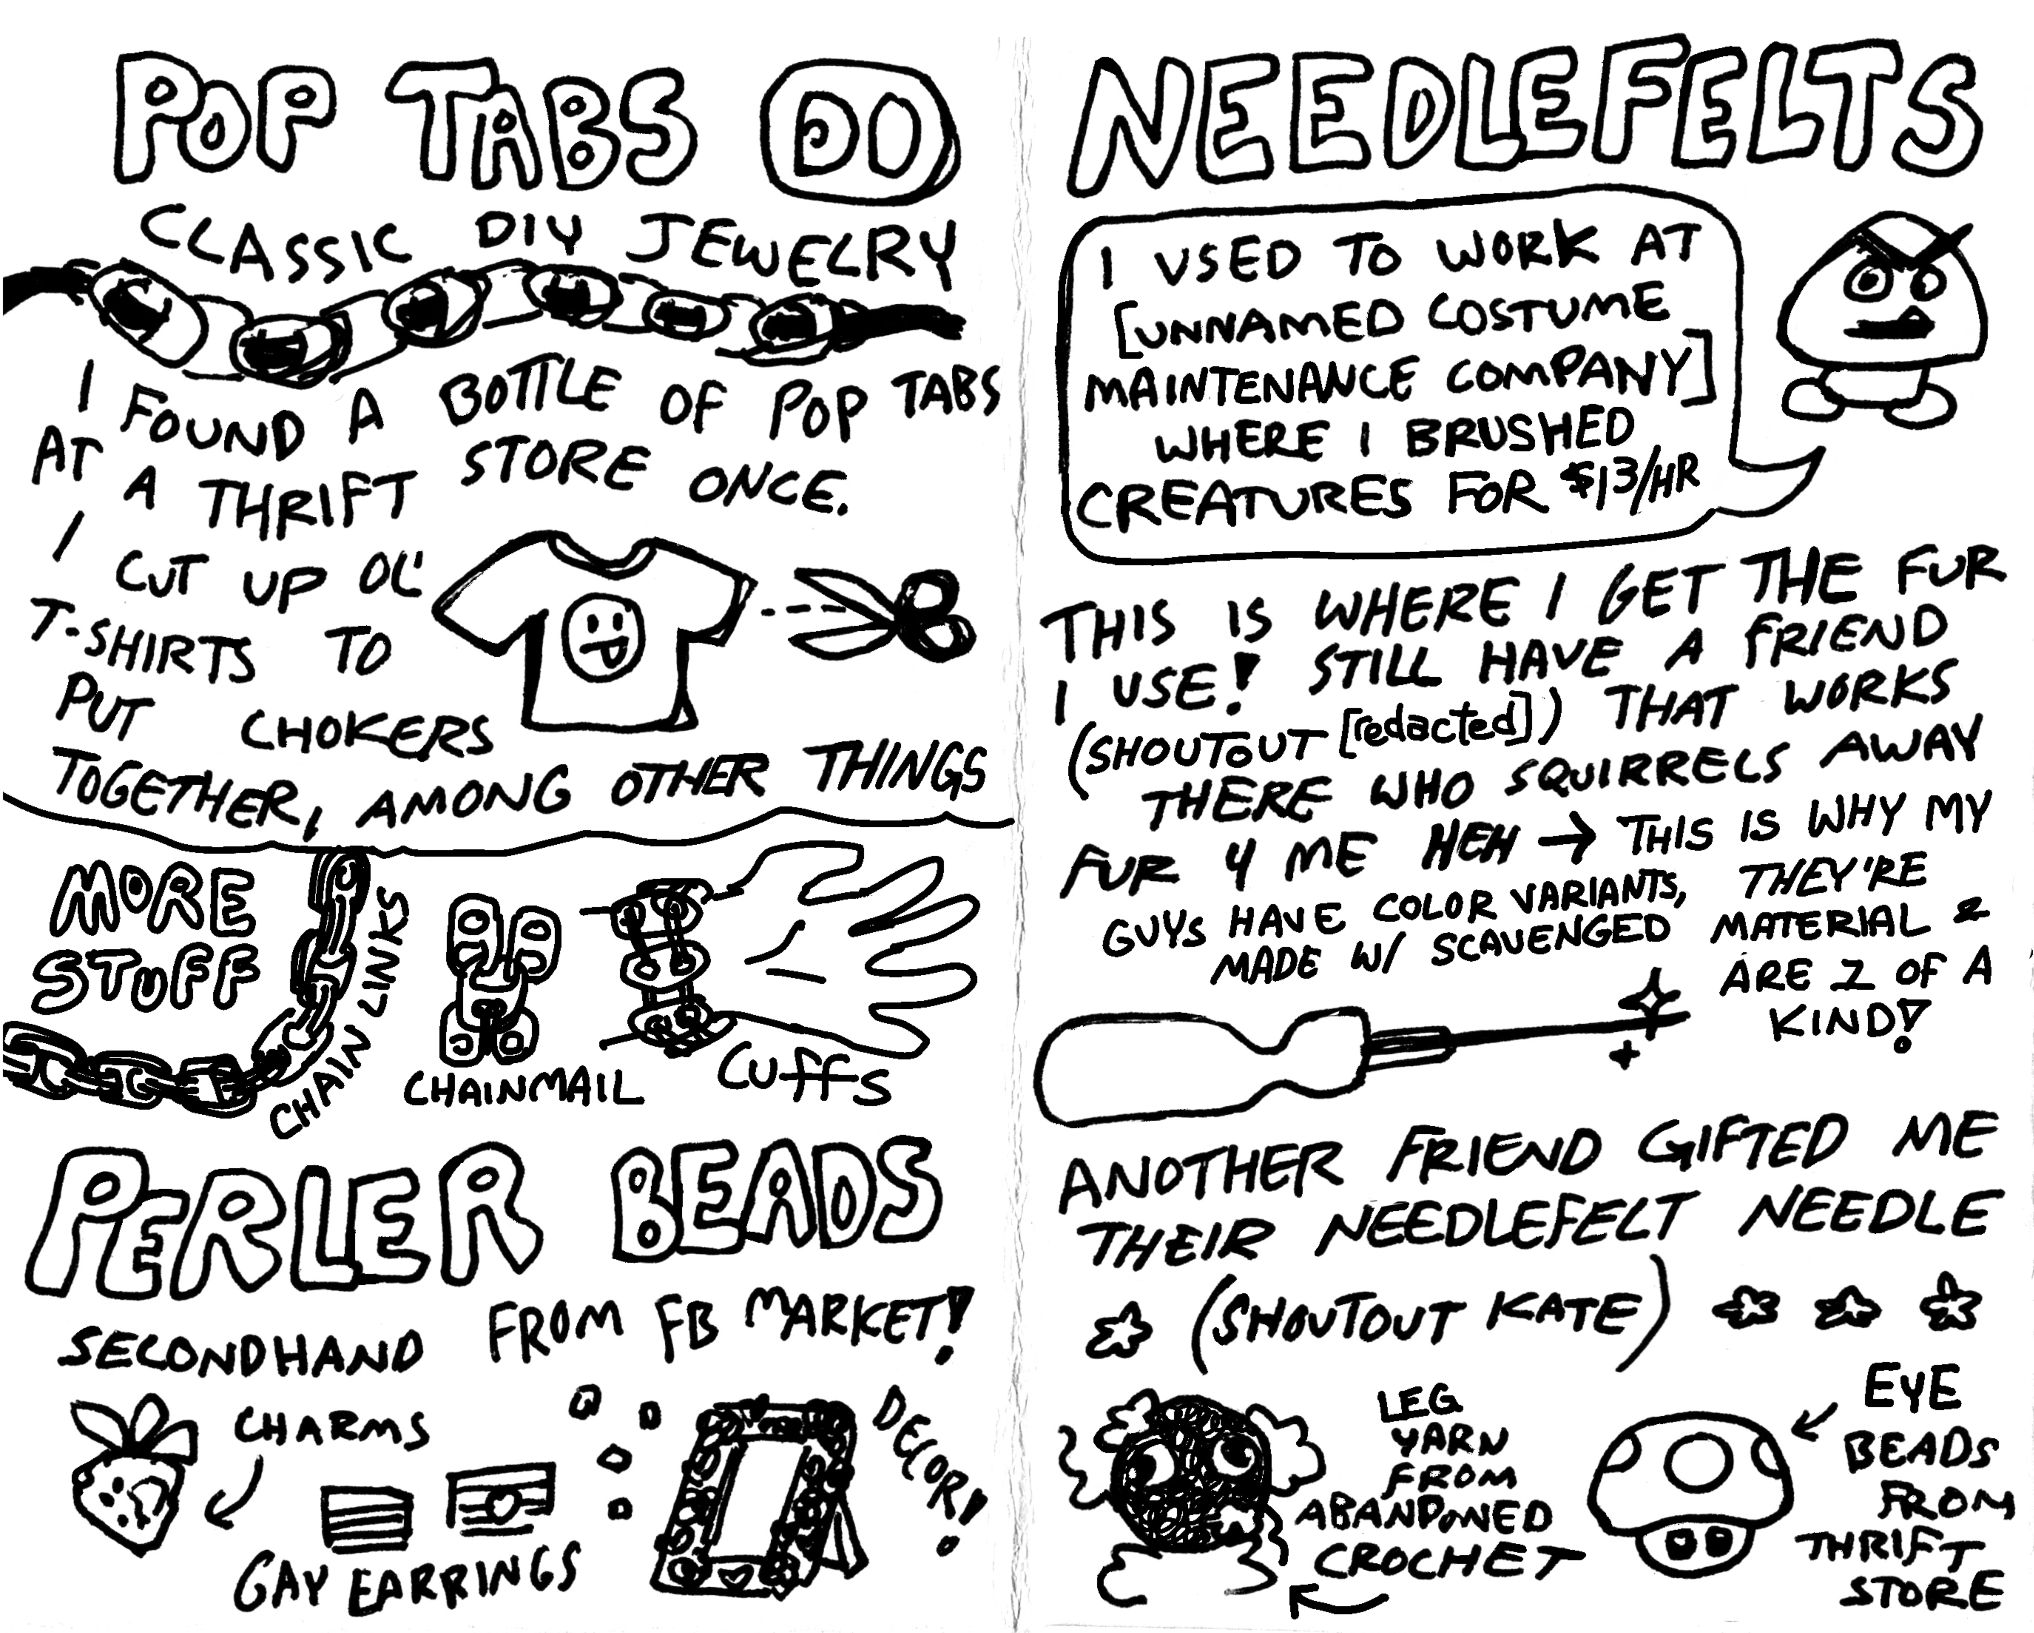 POP TABS
CLASSIC DIY JEWELRY
I FOUND A BOTTLE OF POP TABS
AT A THRIFT STORE ONCE.
I CUT UP OL'
T-SHIRTS TO
PUT CHOKERS
TOGETHER, AMONG OTHER THINGS
MORE
STUFF
CHAIN LINKS
CHAINMAIL
CUFFS
PERLER BEADS
SECONDHAND FROM FB MARKET!
CHARMS
GAY EARRINGS
DECOR!
NEEDLEFELTS
I USED TO WORK AT
[UNNAMED COSTUME
MAINTENANCE COMPANY]
WHERE I BRUSHED
CREATURES FOR $13/HR
THIS IS WHERE I GET THE FUR
I USE! STILL HAVE A FRIEND
(SHOUTOUT [redacted]) THAT WORKS
THERE WHO SQUIRRELS AWAY
FUR 4 ME HEH → THIS IS WHY MY
GUYS HAVE COLOR VARIANTS, THEY'RE
MADE W/ SCAVENGED MATERIAL &
ARE 1 OF A
KIND!
ANOTHER FRIEND GIFTED ME
THEIR NEEDLEFELT NEEDLE
(SHOUTOUT KATE)
LEG
YARN
FROM
ABANDONED
CROCHET
EYE
BEADS
FROM
THRIFT
STORE